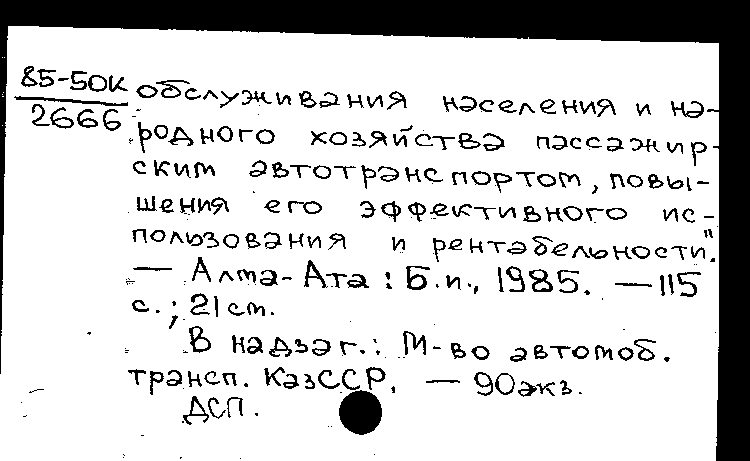 85-50К
2666
обслуживания населения и на-
родного хозяйства пассажир-
ским автотранспортом, повы-
шения его эффективного ис-
пользования и рентабельности".
— Алма-Ата : Б.и., 1985. — 115
с. ; 21 см.
В надзаг.: М-во автомоб.
трансп. КазССР. — 90 экз.
ДСП.